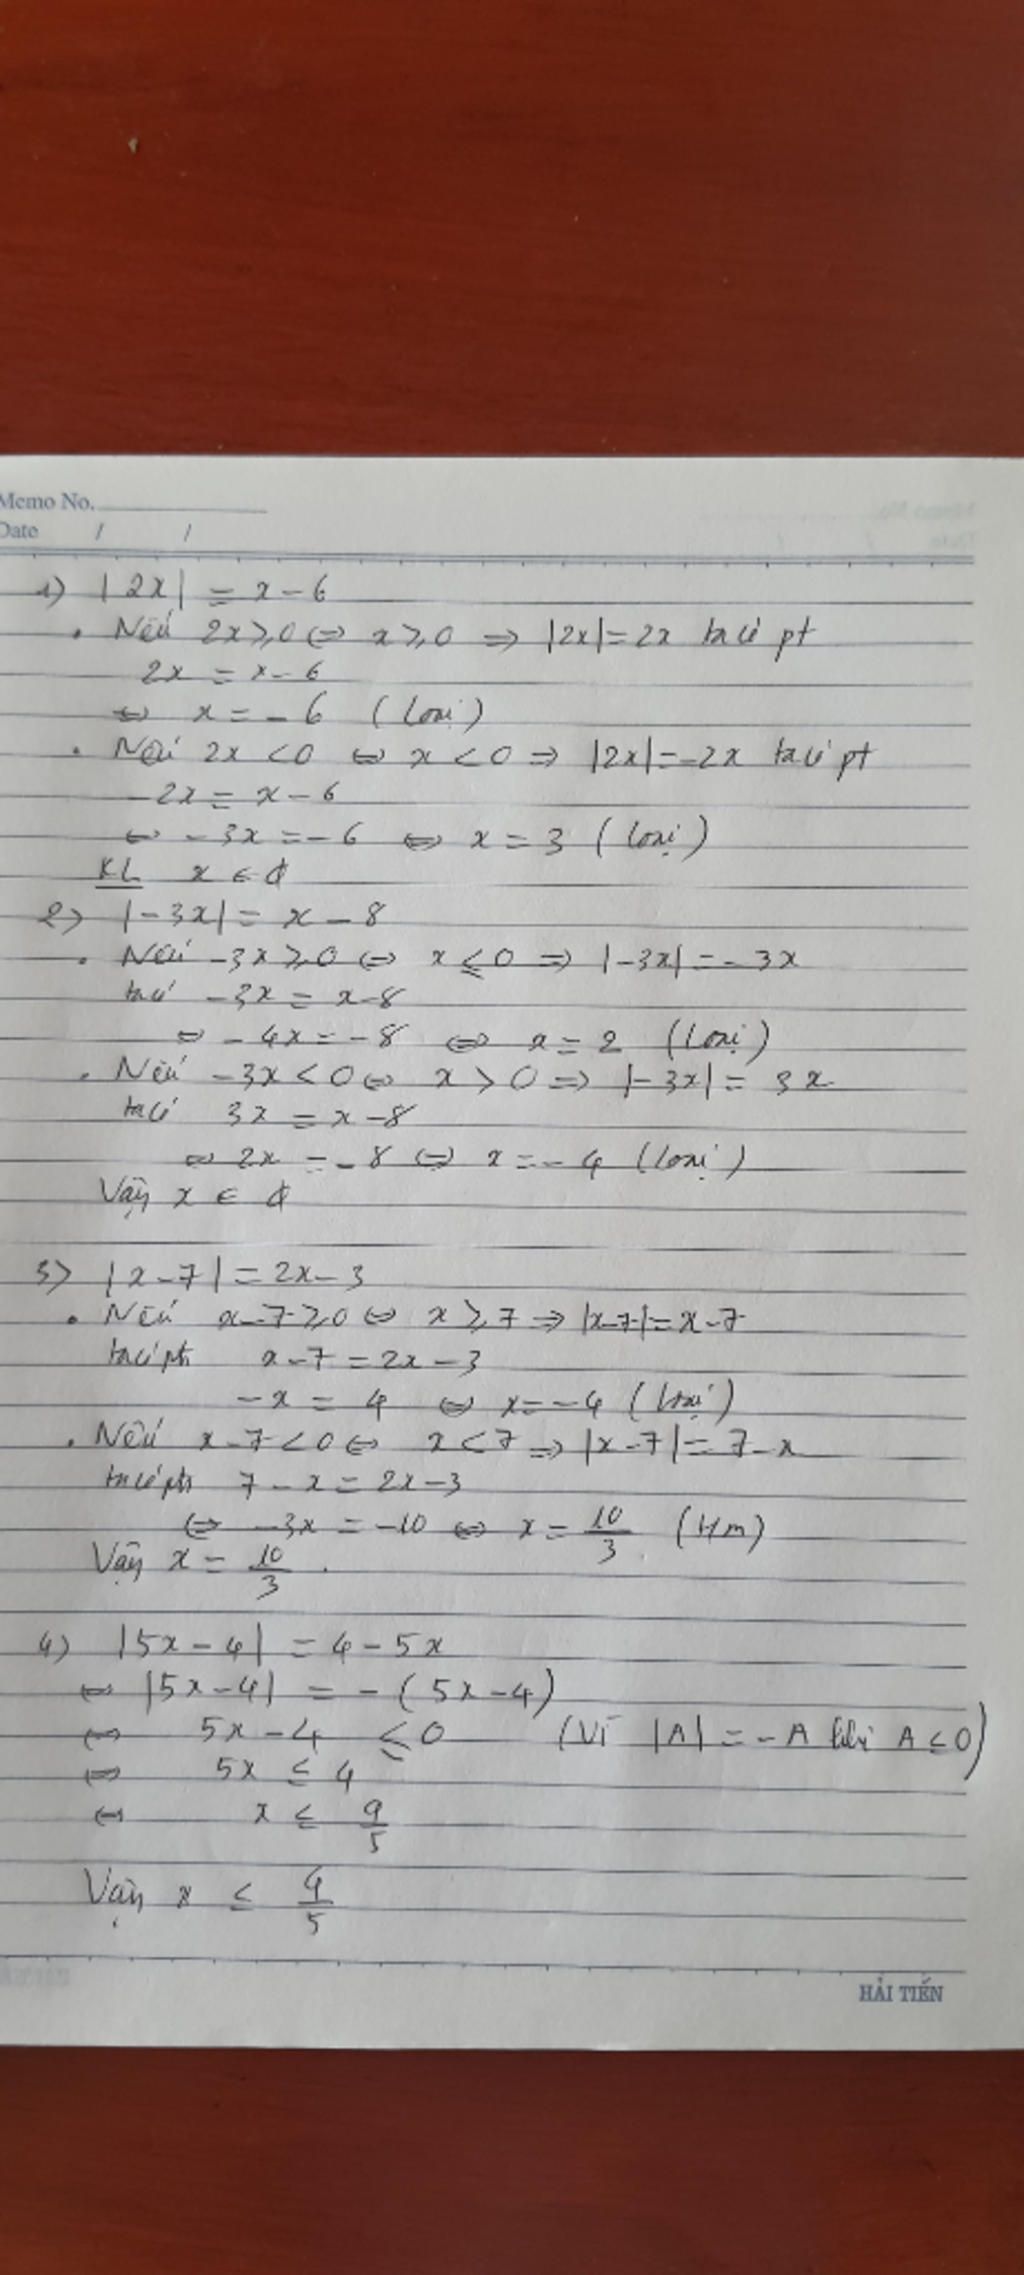 Memo No.
Date / /
1) |2x| = x - 6
• Nếu 2x ⩾ 0 ⇔ x ⩾ 0 ⇒ |2x| = 2x ta có pt
2x = x - 6
⇔ x = - 6 (Loại)
• Nếu 2x < 0 ⇔ x < 0 ⇒ |2x| = -2x ta có pt
-2x = x - 6
⇔ -3x = -6 ⇔ x = 3 (Loại)
KL x ∈ ∅
2) |-3x| = x - 8
• Nếu -3x ⩾ 0 ⇔ x ≤ 0 ⇒ |-3x| = -3x
ta có -3x = x - 8
⇔ -4x = -8 ⇔ x = 2 (Loại)
• Nếu -3x < 0 ⇔ x > 0 ⇒ |-3x| = 3x
ta có 3x = x - 8
⇔ 2x = -8 ⇔ x = -4 (Loại)
Vậy x ∈ ∅
3) |x - 7| = 2x - 3
• Nếu x - 7 ⩾ 0 ⇔ x ⩾ 7 ⇒ |x - 7| = x - 7
ta có pt x - 7 = 2x - 3
-x = 4 ⇔ x = -4 (Loại)
• Nếu x - 7 < 0 ⇔ x < 7 ⇒ |x - 7| = 7 - x
ta có pt 7 - x = 2x - 3
⇔ -3x = -10 ⇔ x = 10/3 (t/m)
Vậy x = 10/3.
4) |5x - 4| = 4 - 5x
⇔ |5x - 4| = -(5x - 4)
⇔ 5x - 4 ≤ 0 (Vì |A| = -A khi A ≤ 0)
⇔ 5x ≤ 4
⇔ x ≤ 4/5
Vậy x ≤ 4/5
HẢI TIẾN